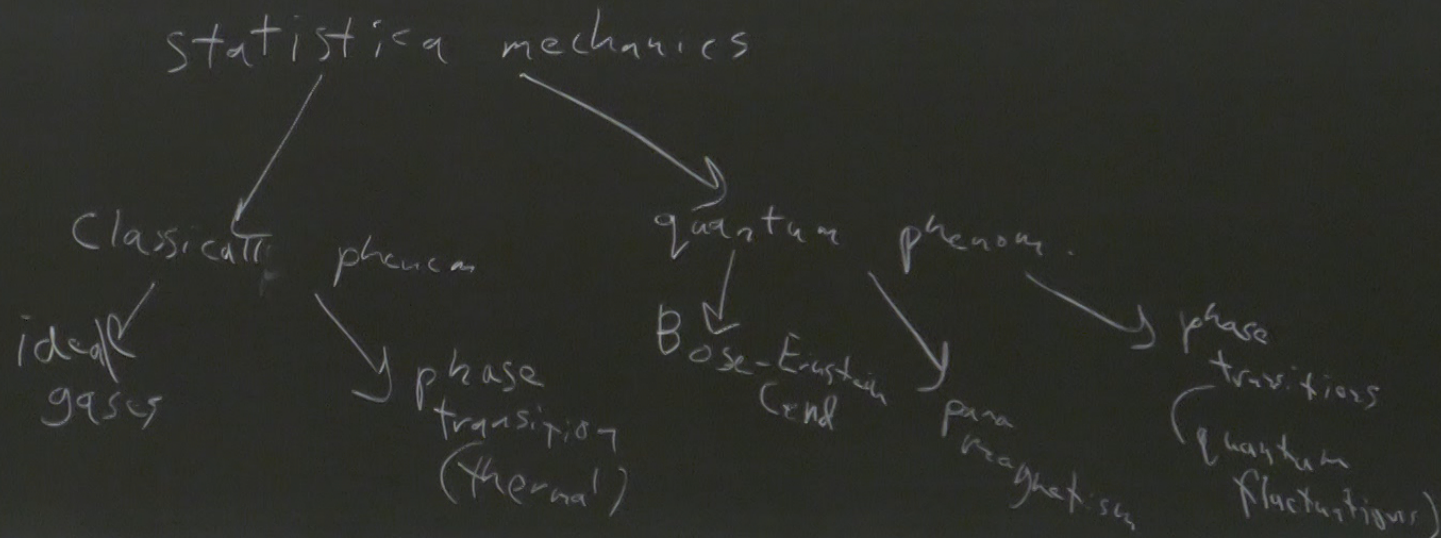 statistica mechanics
Classical phenom
quantum phenom.
ideal
gases
phase
transition
(thermal)
Bose-Einstein
Cond
para
magnetism
phase
transitions
(quantum
fluctuations)